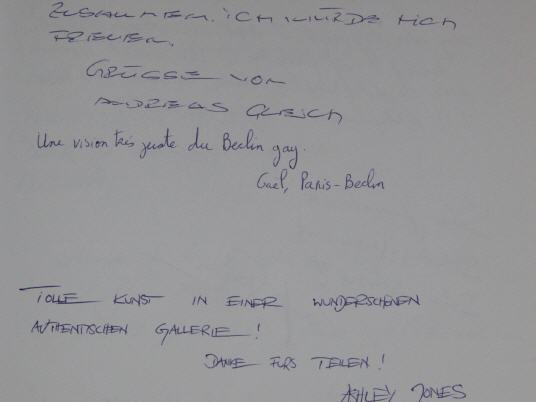 ZUSAMMEN. ICH WÜRDE MICH
FREUEN.
GRÜSSE VON
ANDREAS GLEICH
Une vision très juste du Berlin gay.
Gaël, Paris-Berlin
TOLLE KUNST IN EINER WUNDERSCHÖNEN
AUTHENTISCHEN GALLERIE!
DANKE FÜRS TEILEN!
ASHLEY JONES